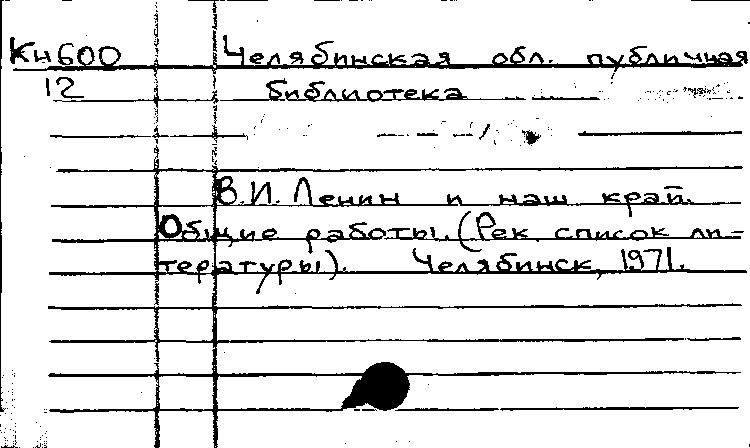 Кн600 Челябинская обл. публичная
12 библиотека
В.И. Ленин и наш край.
Общие работы. (Рек. список ли-
тературы). Челябинск, 1971.